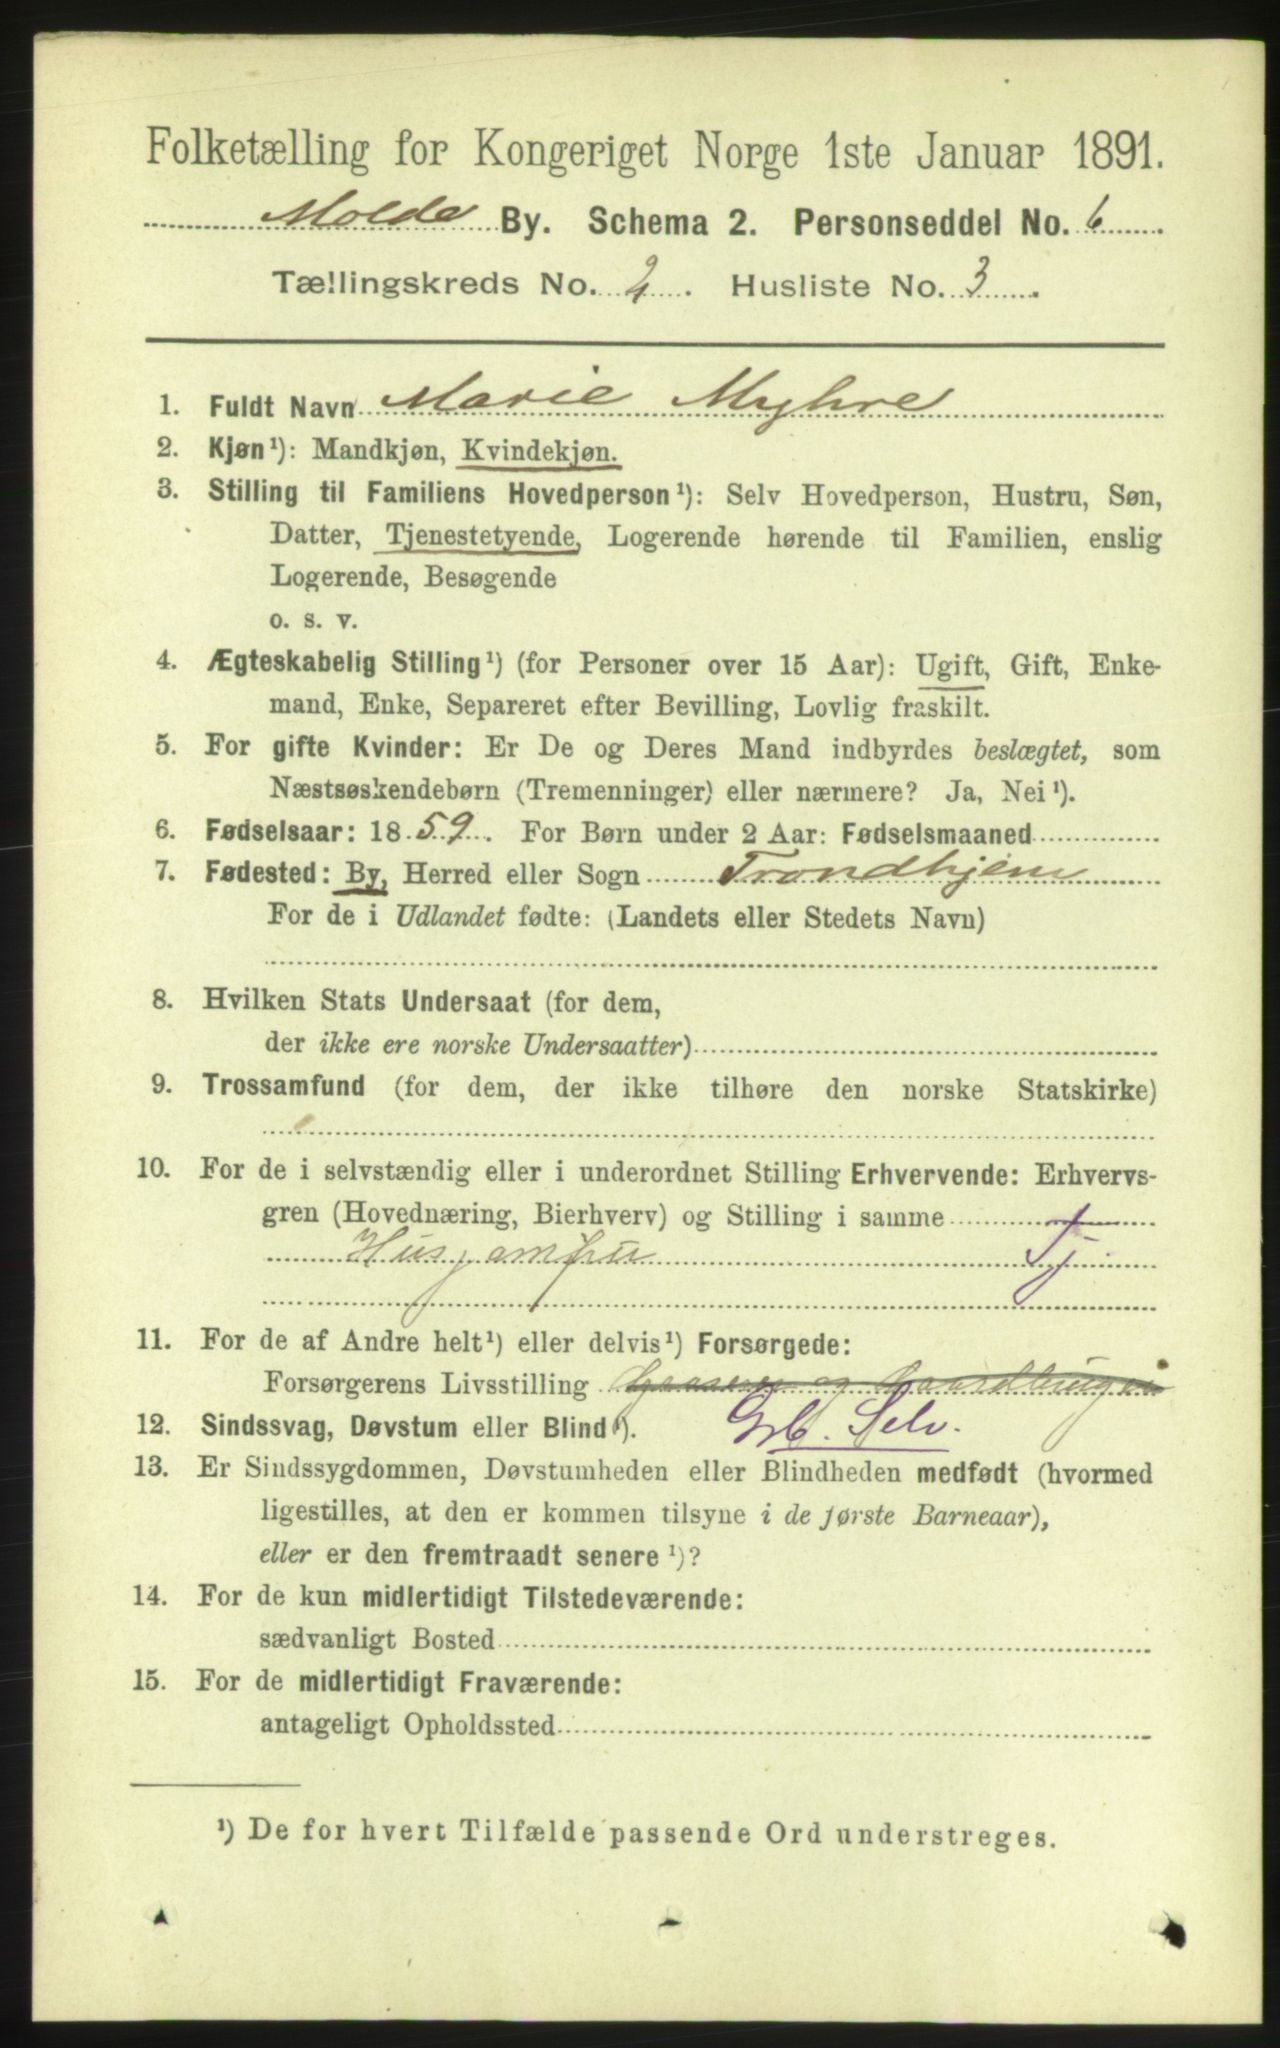 Folketælling for Kongeriget Norge 1ste Januar 1891.
Molde By. Schema 2. Personseddel No. 6
Tællingskreds No. 2. Husliste No. 3
1. Fuldt Navn Marie Myhre
2. Kjøn¹): Mandkjøn, Kvindekjøn.
3. Stilling til Familiens Hovedperson¹): Selv Hovedperson, Hustru, Søn,
Datter, Tjenestetyende, Logerende hørende til Familien, enslig
Logerende, Besøgende
o. s. v.
4. Ægteskabelig Stilling¹) (for Personer over 15 Aar): Ugift, Gift, Enke-
mand, Enke, Separeret efter Bevilling, Lovlig fraskilt.
5. For gifte Kvinder: Er De og Deres Mand indbyrdes beslægtet, som
Næstsøskendebørn (Tremenninger) eller nærmere? Ja, Nei¹).
6. Fødselsaar: 1859. For Børn under 2 Aar: Fødselsmaaned
7. Fødested: By, Herred eller Sogn Trondhjem
For de i Udlandet fødte: (Landets eller Stedets Navn)
8. Hvilken Stats Undersaat (for dem,
der ikke ere norske Undersaatter)
9. Trossamfund (for dem, der ikke tilhøre den norske Statskirke)
10. For de i selvstændig eller i underordnet Stilling Erhvervende: Erhvervs-
gren (Hovednæring, Bierhverv) og Stilling i samme
Husjomfru Tj.
11. For de af Andre helt¹) eller delvis¹) Forsørgede:
Forsørgerens Livsstilling og Gaardbruger
12. Sindssvag, Døvstum eller Blind¹). Grb. Selv.
13. Er Sindssygdommen, Døvstumheden eller Blindheden medfødt (hvormed
ligestilles, at den er kommen tilsyne i de første Barneaar),
eller er den fremtraadt senere ¹)?
14. For de kun midlertidigt Tilstedeværende:
sædvanligt Bosted
15. For de midlertidigt Fraværende:
antageligt Opholdssted
¹) De for hvert Tilfælde passende Ord understreges.